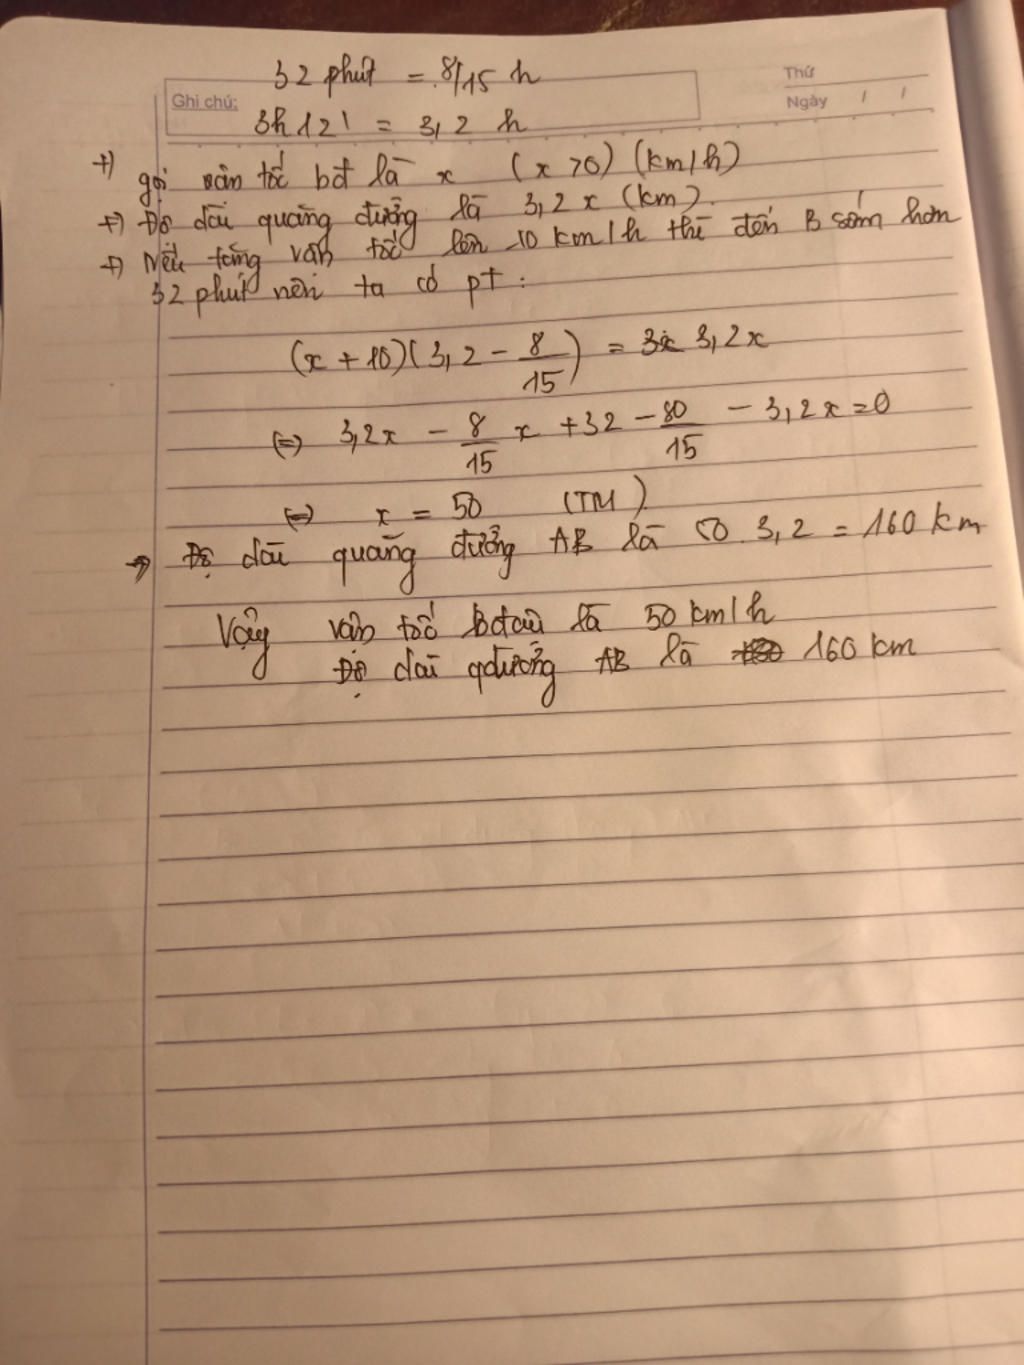 32 phút = 8/15 h
Thứ
Ghi chú:
Ngày / /
3h12' = 3,2 h
+) gọi vận tốc bđ là x (x>0) (km/h)
+) Độ dài quãng đường là 3,2x (km).
+) Nếu tăng vân tốc lên 10 km/h thì đến B sớm hơn
32 phút nên ta có pt:
(x + 10)(3,2 - 8/15) = 3,2x
(=) 3,2x - 8/15 x + 32 - 80/15 - 3,2x = 0
(=) x = 50 (TM).
=> Độ dài quãng đường AB là 50. 3,2 = 160 km
Vậy vận tốc bđầu là 50 km/h
Độ dài qđường AB là 160 km